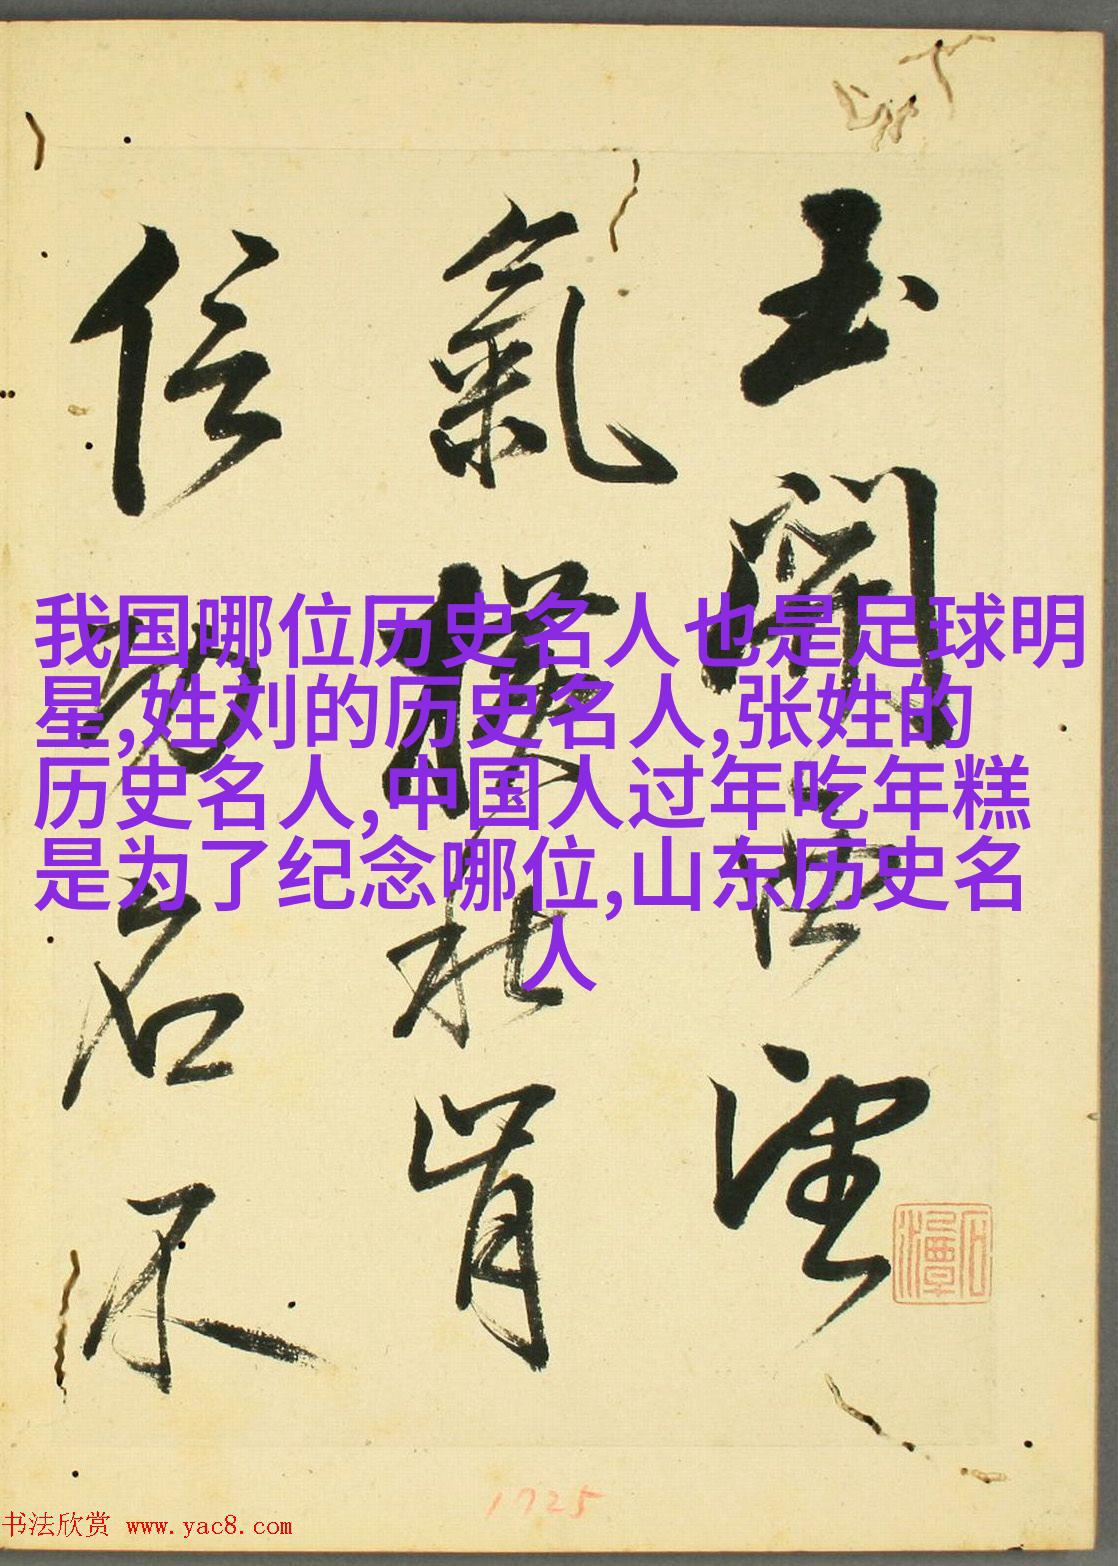 我国哪位历史名人也是足球明
星,姓刘的历史名人,张姓的
历史名人,中国人过年吃年糕
是为了纪念哪位,山东历史名
人
玉關世望
氣横秋肯
信功名不
1725
书法欣赏 www.yac8.com